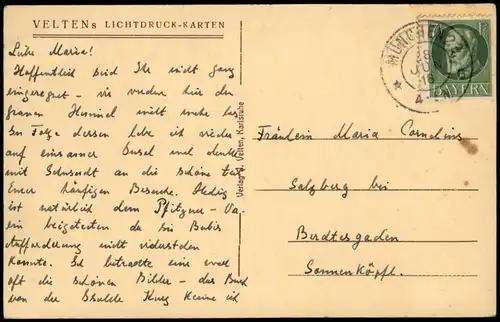 VELTENs LICHTDRUCK-KARTEN
Liebe Maria!
Hoffentlich seid Ihr nicht ganz
eingeregnet - wir werden hier den
grauen Himmel nicht mehr los.
In Folge dessen lebe ich wieder
auf einsamer Insel und denke
mit Sehnsucht an die schöne Zeit
Eurer häufigen Besuche. Hedwig
ist natürlich dem Pfitzner-Ve-
ein beigetreten da sie
Aufforderung nicht widerstehen
konnte. Ich betrachte eine
oft die schönen Bilder - das Buch
von der
Verlag J. Velten, Karlsruhe
MÜNCHEN
BAYERN
Fräulein Maria Cornelius
Salzberg bei
Berchtesgaden
Sonnenköpfl.